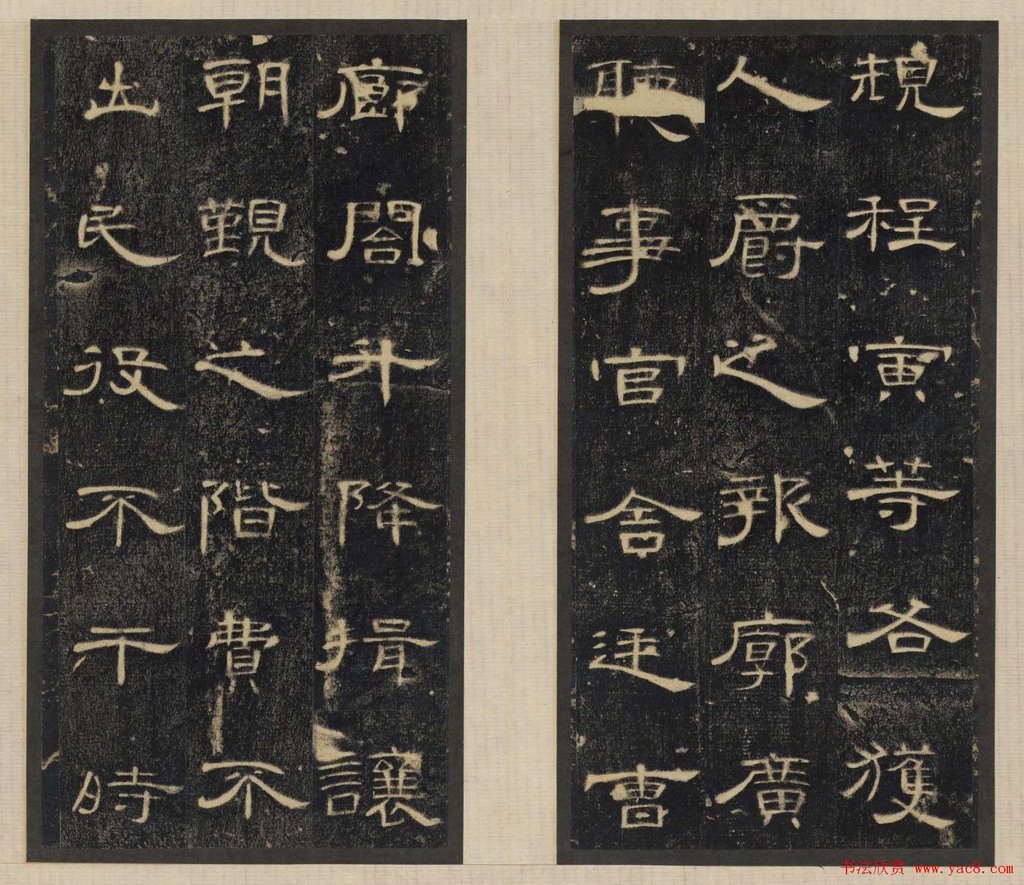 規程寅等各獲
人爵之報廓廣
聽事官舍廷曹
廊閤升降揖讓
朝覲之階費不
出民役不干時
书法欣赏 www.yac8.com